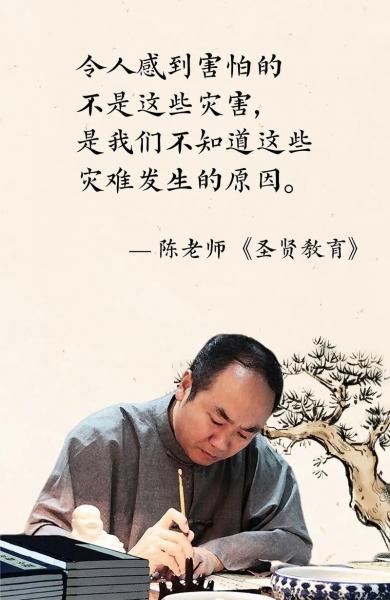 令人感到害怕的
不是这些灾害，
是我们不知道这些
灾难发生的原因。
— 陈老师《圣贤教育》